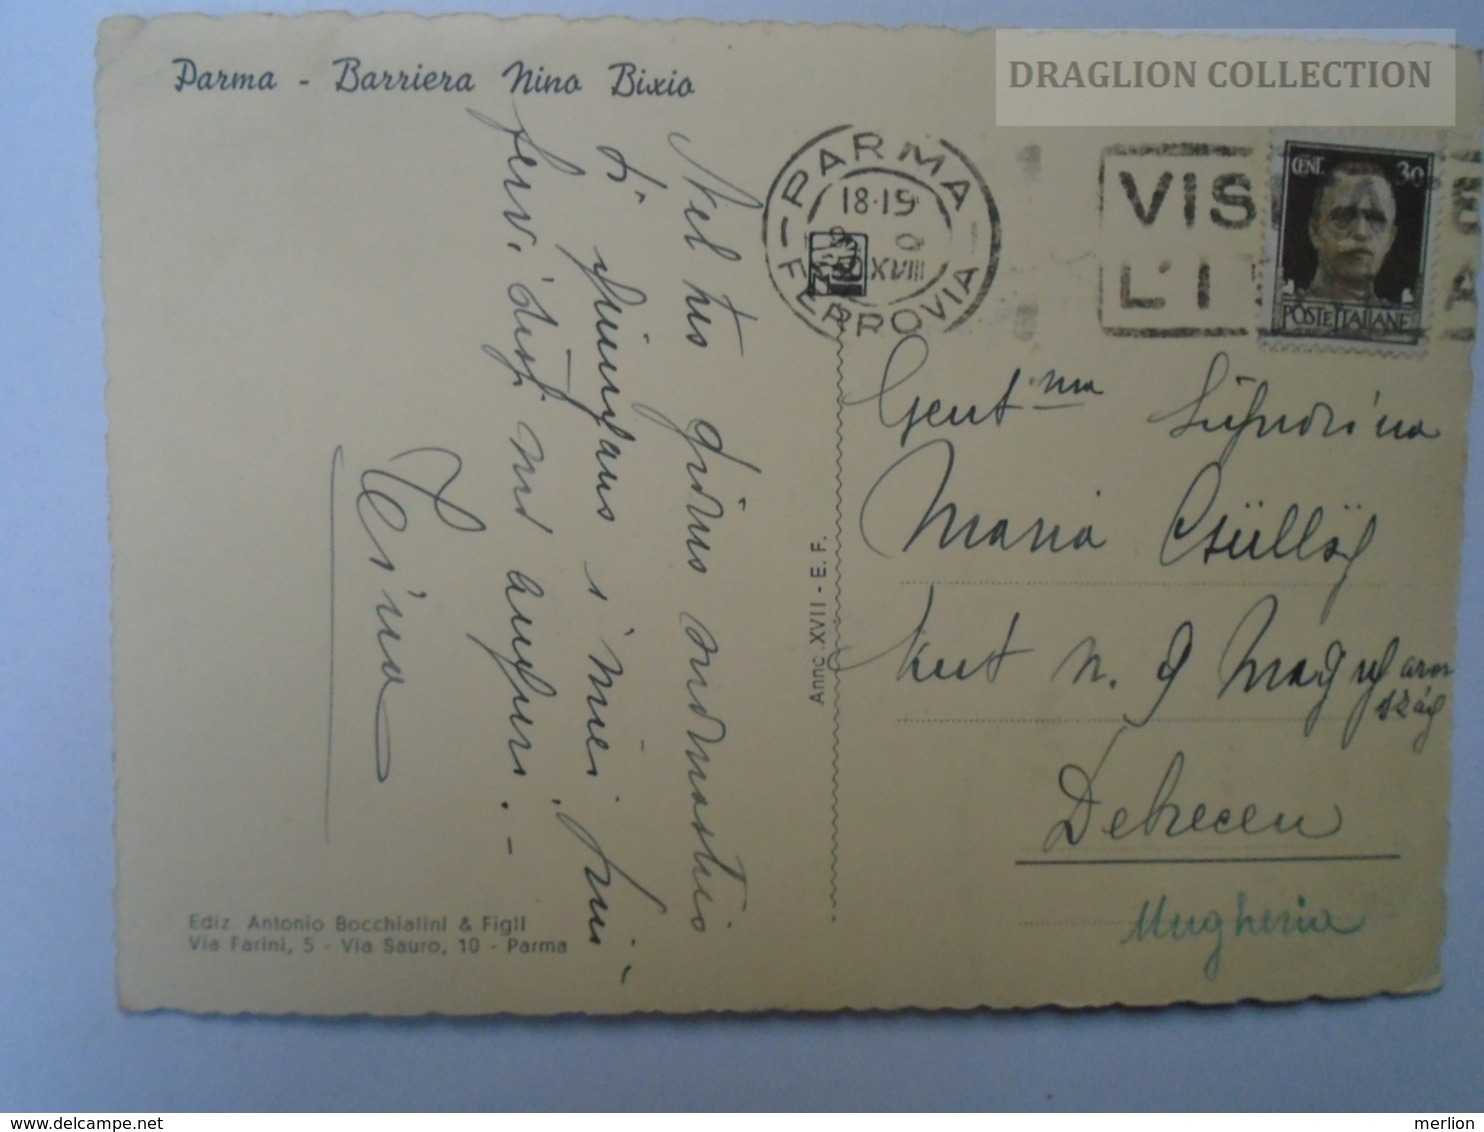 DRAGLION COLLECTION
Parma - Barriera Nino Bixio
PARMA
18·19
XVIII
FERROVIA
VIS
L'I
CENT. 30
POSTE ITALIANE
Nel tuo giorno onomastico
ti giungano i miei più
fervidissimi auguri. -
Anno XVII - E. F.
Gent.ma Signorina
Maria Csüllög
Kut n. 9 Magyaror
szág
Debrecen
Ungheria
Ediz. Antonio Bocchialini & Figli
Via Farini, 5 - Via Sauro, 10 - Parma
merlion